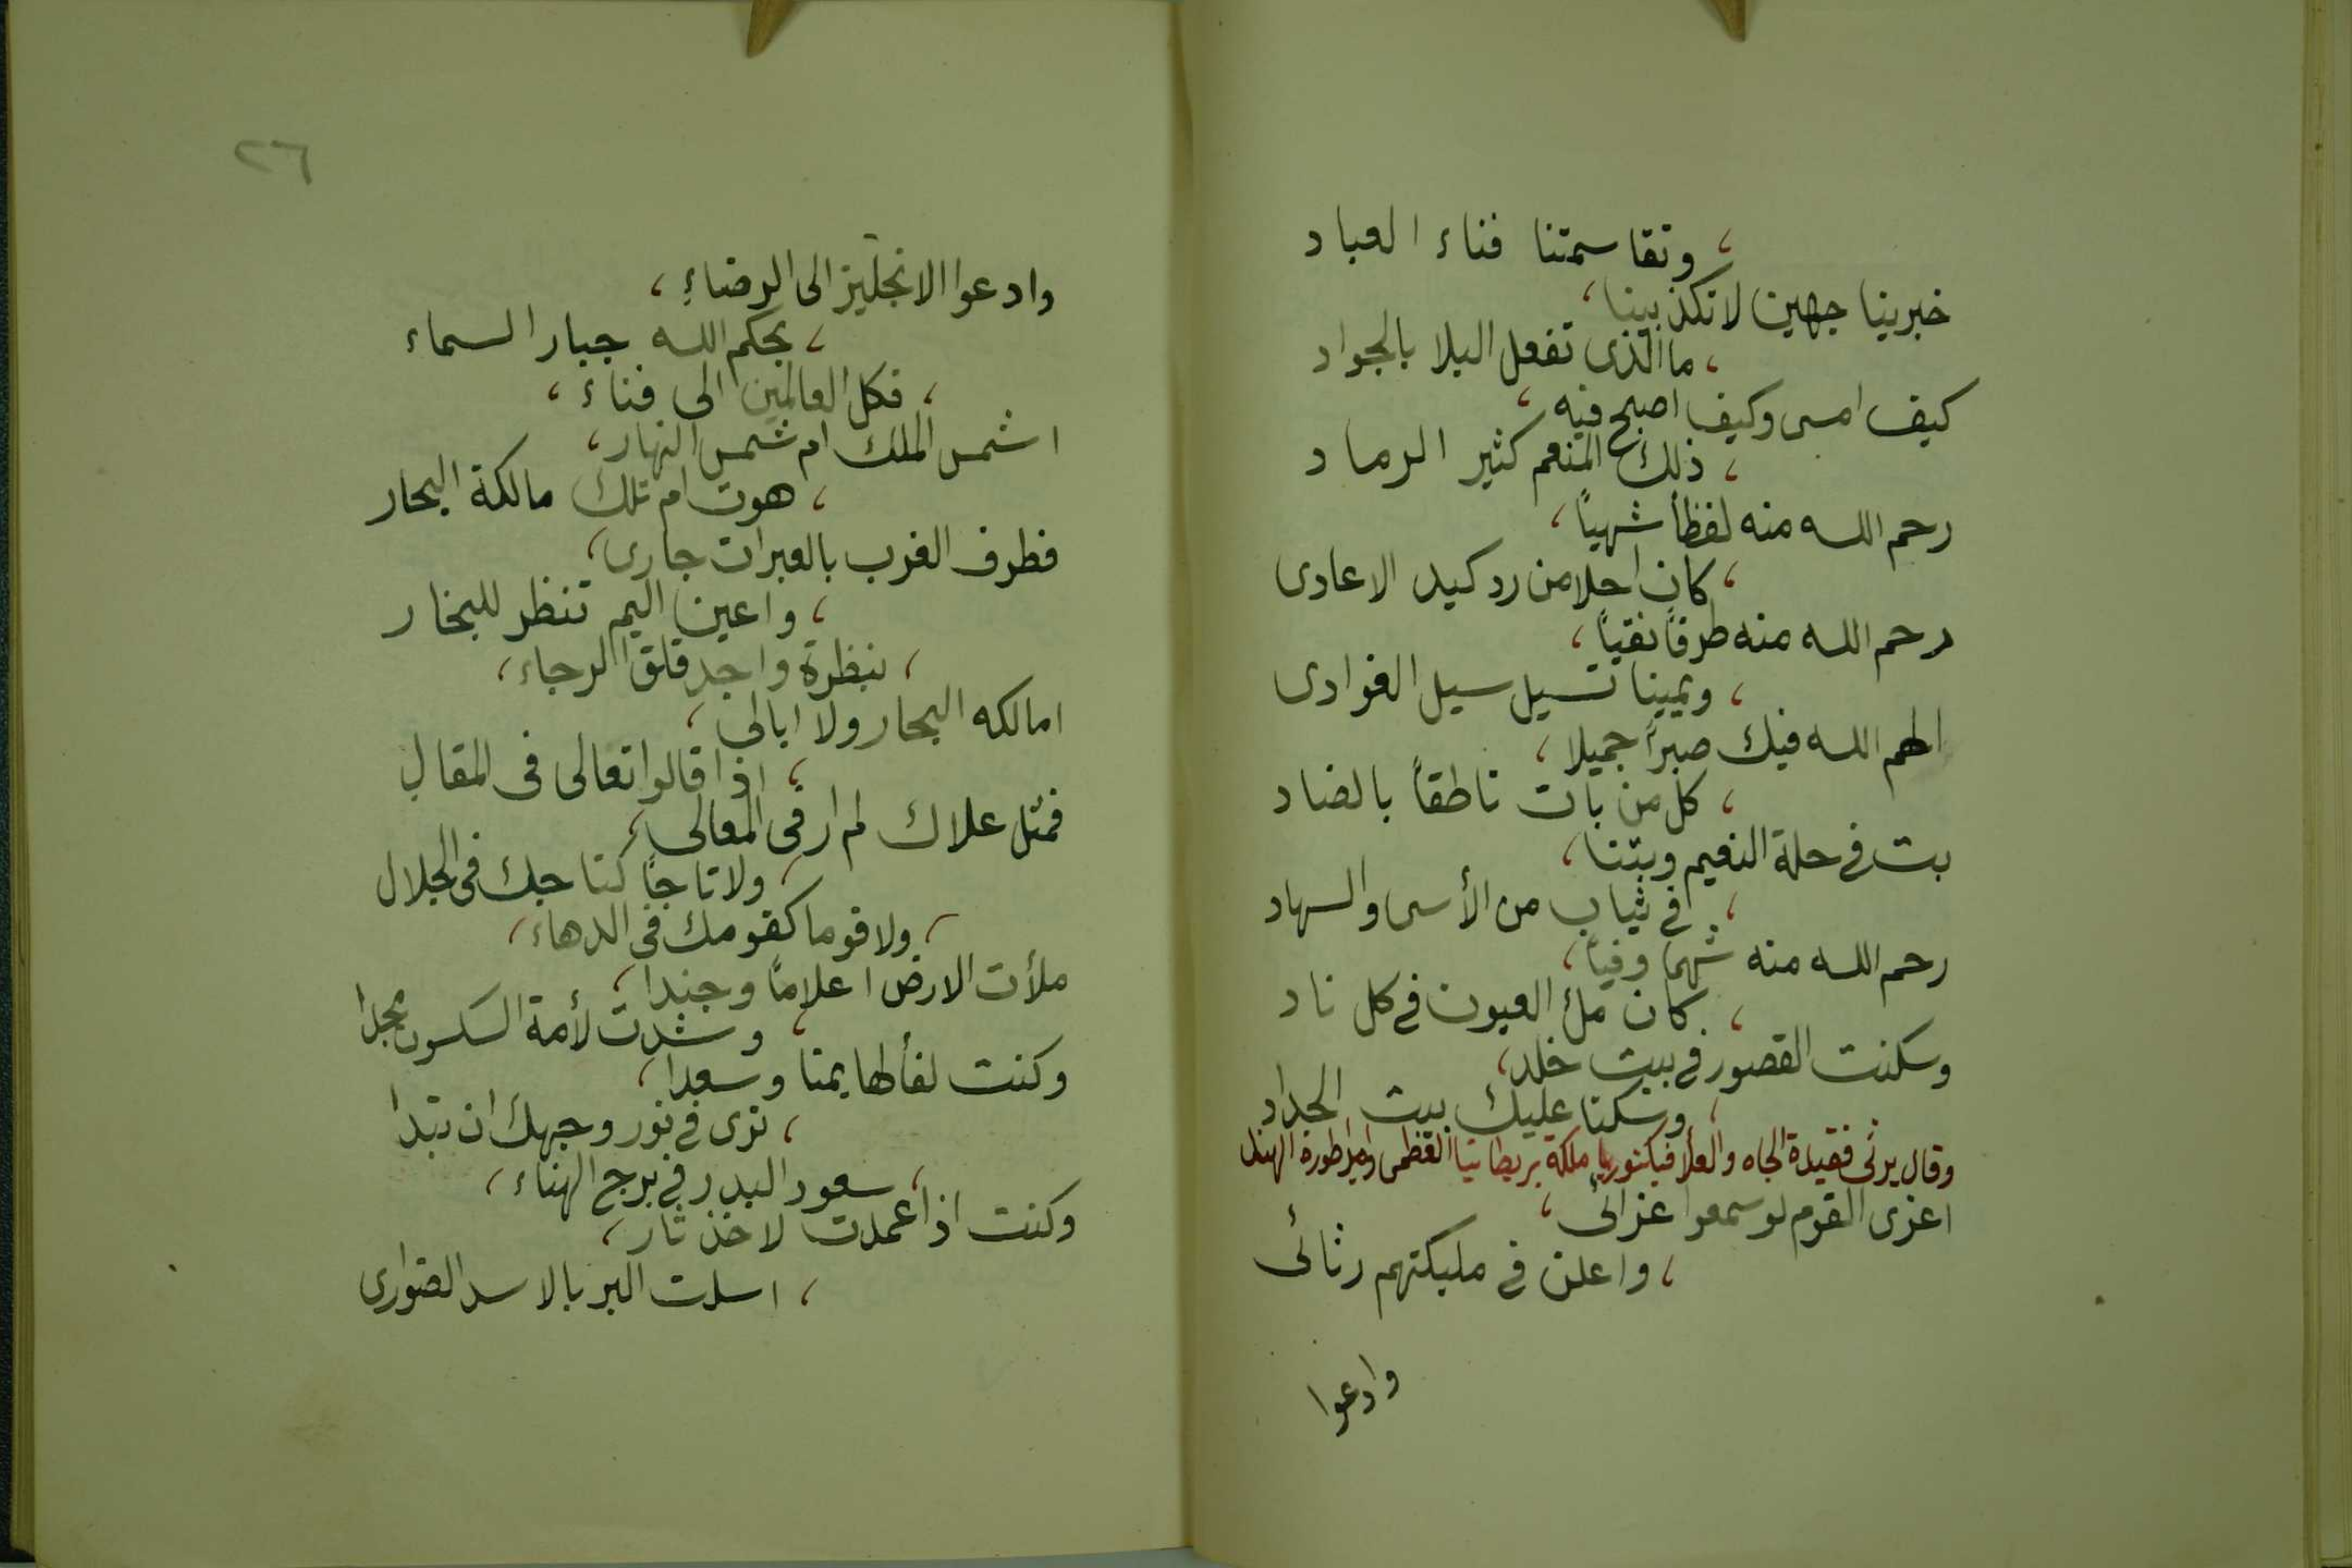 ، وتقاسمتنا فناء العباد
خبرينا جهين لا تكذبينا،
، ما الذى تفعل البلا بالجواد
كيف امسى وكيف اصبح فيه،
، ذلك المنعم كثير الرماد
رحم الله منه لفظاً شهياً،
، كان احلا من رد كيد الاعادى
رحم الله منه طرفاً نقياً،
، ويمينا تسيل سيل الغوادى
الهم الله فيك صبراً جميلا،
، كل من بات ناطقاً بالضاد
بت فى حلة النعيم وبتنا،
، فى ثياب من الأسى والسهاد
رحم الله منه شهما وفياً،
، كان ملئ العيون فى كل ناد
وسكنت القصور فى بيت خلد،
، وسكنا عليك بيت الحداد
وقال يرثى فقيدة الجاه والعلا فيكتوريا ملكة بريطانيا العظمى وامبراطورة الهند
اعزى القوم لو سمعوا عزائى،
، واعلن فى مليكتهم رثائى
وادعوا
٢٦
وادعوا الانجليز الى الرضاءِ،
، بحكم الله جبار السماء
، فكل العالمين الى فناء،
اشمس الملك ام شمس النهار،
، هوت ام تلك مالكة البحار
فطرف الغرب بالعبرات جارى،
، واعين اليم تنظر للبخار
، بنظرة واجد قلق الرجاء،
امالكه البحار ولا ابالى،
، اذا قالوا تعالى فى المقال
فمثل علاك لم ار فى المعالى،
، ولا تاجاً كتاجك فى الجلال
، ولا قوما كقومك فى الدهاء،
ملأت الارض اعلاماً وجندا،
، وشدت لأمة السكسون مجدا
وكنت لفألها يمنا وسعدا،
، نرى فى نور وجهك ان تبدا
، سعود البدر فى برج الهناء،
وكنت اذا عمدت لاخذ ثار،
، اسلت البر بالاسد الضوارى